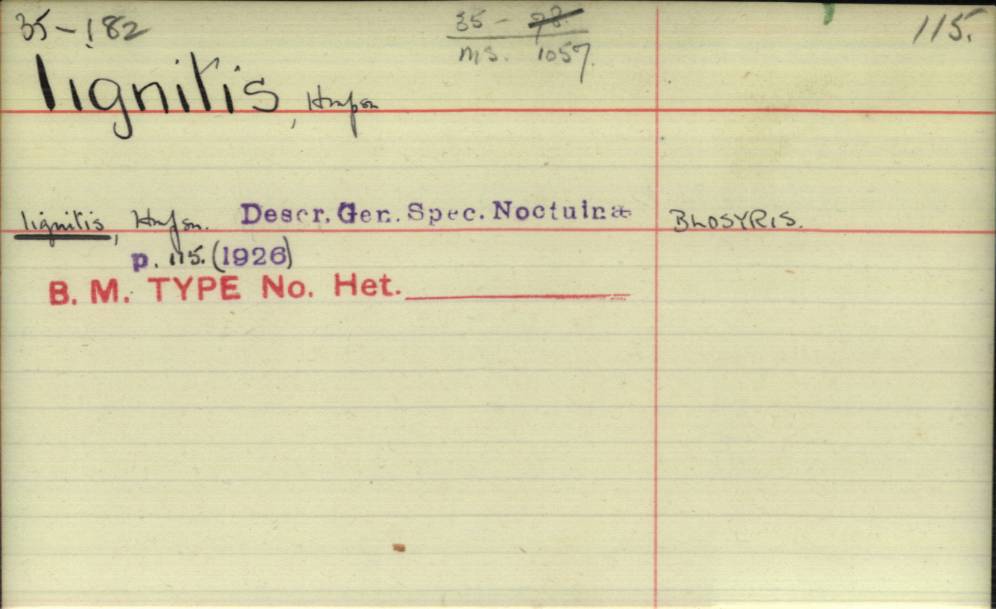 35-182
35 - 98.
ms. 1057.
115.
lignitis, Hmpsn
lignitis, Hmpsn. Descr. Gen. Spec. Noctuinæ
BLOSYRIS.
p. 115. (1926)
B. M. TYPE No. Het.